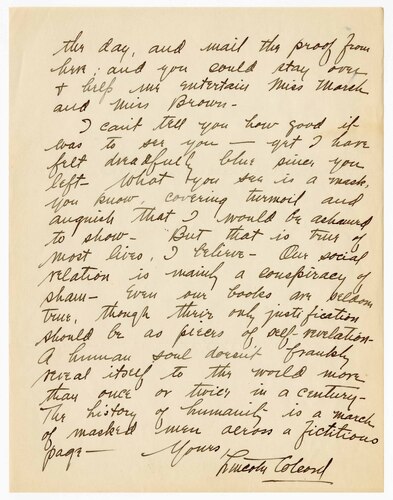 the day, and mail the proof from
here; and you could stay over
+ help me entertain Miss March
and Miss Brown-
I can't tell you how good it
was to see you — yet I have
felt dreadfully blue since you
left- What you see is a mask,
you know, covering turmoil and
anguish that I would be ashamed
to show- But that is true of
most lives, I believe- Our social
relation is mainly a conspiracy of
sham- Even our books are seldom
true, though their only justification
should be as pieces of self-revelation-
A human soul doesn't frankly
reveal itself to the world more
than once or twice in a century-
The history of humanity is a march
of masked men across a fictitious
page-
Yours,
Lincoln Colcord